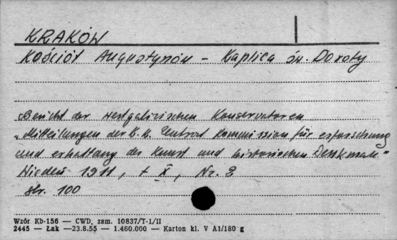 KRAKÓW
Kościół Augustynów - Kaplica św. Doroty
Bericht der westgalizischen Konservatoren
"Mitteilungen der K. K. Zentral Kommission für erforschung
und erhaltung der Kunst und historischen Denkmale"
Wiedeń 1911, t X, Nr. 3
str. 100
Wzór Kb-156 — CWD, zam. 10837/T-1/II
2445 — Łak —23.8.55 — 1.460.000 — Karton kl. V A1/180 g